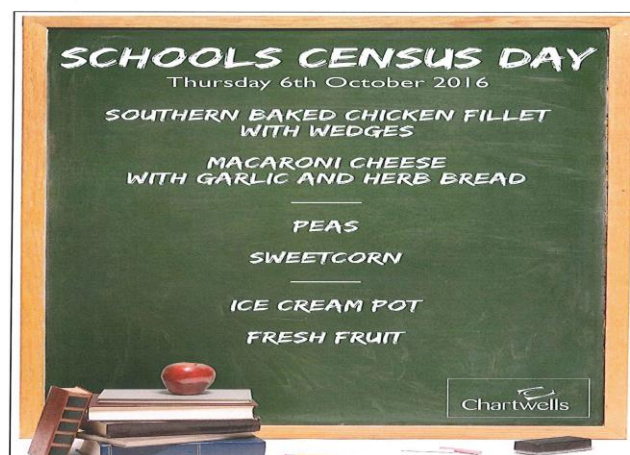 SCHOOLS CENSUS DAY
Thursday 6th October 2016
SOUTHERN BAKED CHICKEN FILLET
WITH WEDGES
MACARONI CHEESE
WITH GARLIC AND HERB BREAD
PEAS
SWEETCORN
ICE CREAM POT
FRESH FRUIT
Chartwells